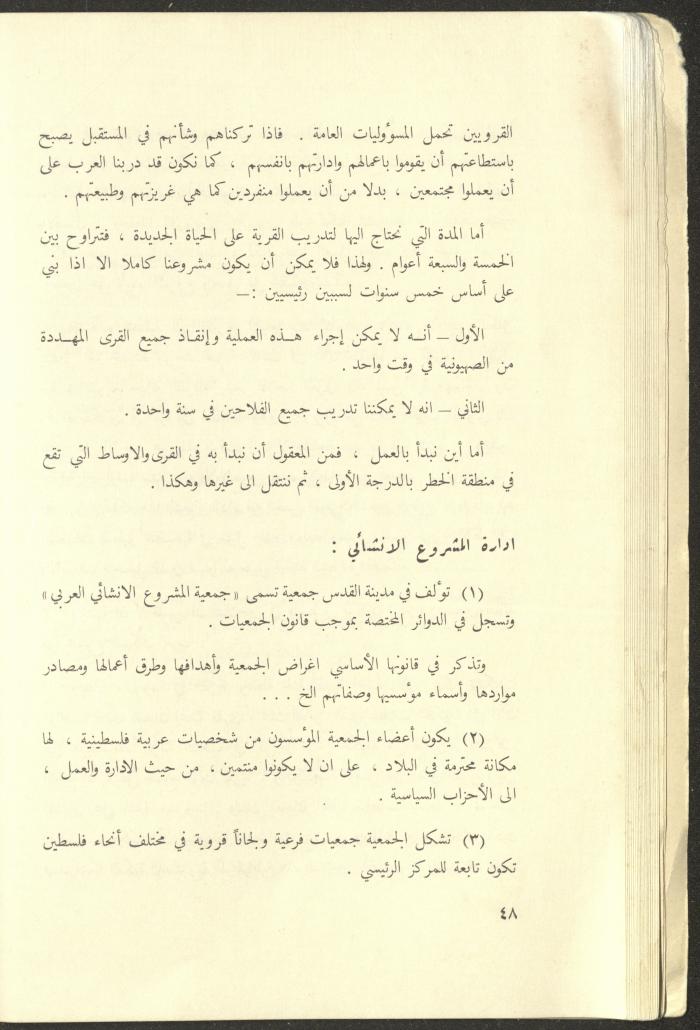 القرويين تحمل المسؤوليات العامة . فاذا تركناهم وشأنهم في المستقبل يصبح
باستطاعتهم أن يقوموا باعمالهم وادارتهم بانفسهم ، كما نكون قد دربنا العرب على
أن يعملوا مجتمعين ، بدلا من أن يعملوا منفردين كما هي غريزتهم وطبيعتهم .
أما المدة التي نحتاج اليها لتدريب القرية على الحياة الجديدة ، فتتراوح بين
الخمسة والسبعة أعوام . ولهذا فلا يمكن أن يكون مشروعنا كاملا الا اذا بني
على أساس خمس سنوات لسببين رئيسيين :—
الأول — أنه لا يمكن إجراء هذه العملية وإنقاذ جميع القرى المهددة
من الصهيونية في وقت واحد .
الثاني — انه لا يمكننا تدريب جميع الفلاحين في سنة واحدة .
أما أين نبدأ بالعمل ، فمن المعقول أن نبدأ به في القرى والاوساط التي تقع
في منطقة الخطر بالدرجة الأولى ، ثم ننتقل الى غيرها وهكذا .
ادارة المشروع الانشائي :
(١) تؤلف في مدينة القدس جمعية تسمى «جمعية المشروع الانشائي العربي»
وتسجل في الدوائر المختصة بموجب قانون الجمعيات .
وتذكر في قانونها الأساسي اغراض الجمعية وأهدافها وطرق أعمالها ومصادر
مواردها وأسماء مؤسسيها وصفاتهم الخ . . .
(٢) يكون أعضاء الجمعية المؤسسون من شخصيات عربية فلسطينية ، لها
مكانة محترمة في البلاد ، على ان لا يكونوا منتمين ، من حيث الادارة والعمل ،
الى الأحزاب السياسية .
(٣) تشكل الجمعية جمعيات فرعية ولجاناً قروية في مختلف أنحاء فلسطين
تكون تابعة للمركز الرئيسي .
٤٨